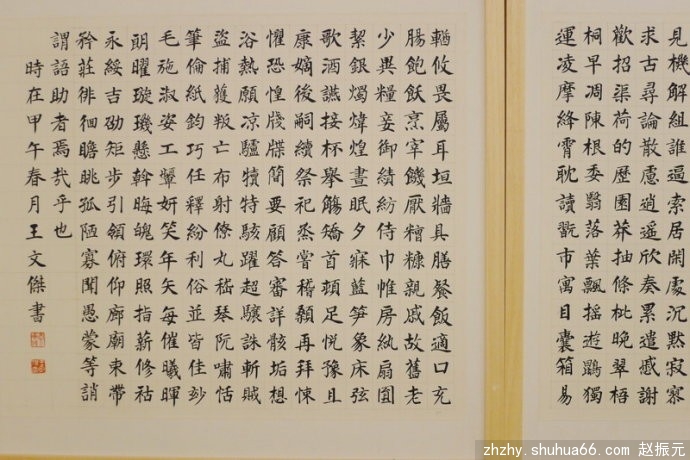 見機解組誰逼索居閑處沉默寂寥
求古尋論散慮逍遙欣奏累遣慼謝
歡招渠荷的歷園莽抽條枇晚翠梧
桐早凋陳根委翳落葉飄搖遊鵾獨
運凌摩絳霄耽讀翫市寓目囊箱易
輶攸畏屬耳垣牆具膳餐飯適口充
腸飽飫烹宰饑厭糟糠親戚故舊老
少異糧妾御績紡侍巾帷房紈扇圓
絜銀燭煒煌晝眠夕寐藍笋象床弦
歌酒讌接杯舉觴矯首頓足悅豫且
康嫡後嗣續祭祀烝嘗稽顙再拜悚
懼恐惶牋牒簡要顧答審詳骸垢想
浴熱願涼驢犢特駭躍超驤誅斬賊
盜捕獲叛亡布射僚丸嵇琴阮嘯恬
筆倫紙鈞巧任釋紛利俗並皆佳妙
毛施淑姿工顰妍笑年矢每催曦暉
朗曜璇璣懸斡晦魄環照指薪修祜
永綏吉劭矩步引領俯仰廊廟束帶
矜莊徘徊瞻眺孤陋寡聞愚蒙等誚
謂語助者焉哉乎也
時在甲午春月王文傑書
zhzhy.shuhua66.com 赵振元